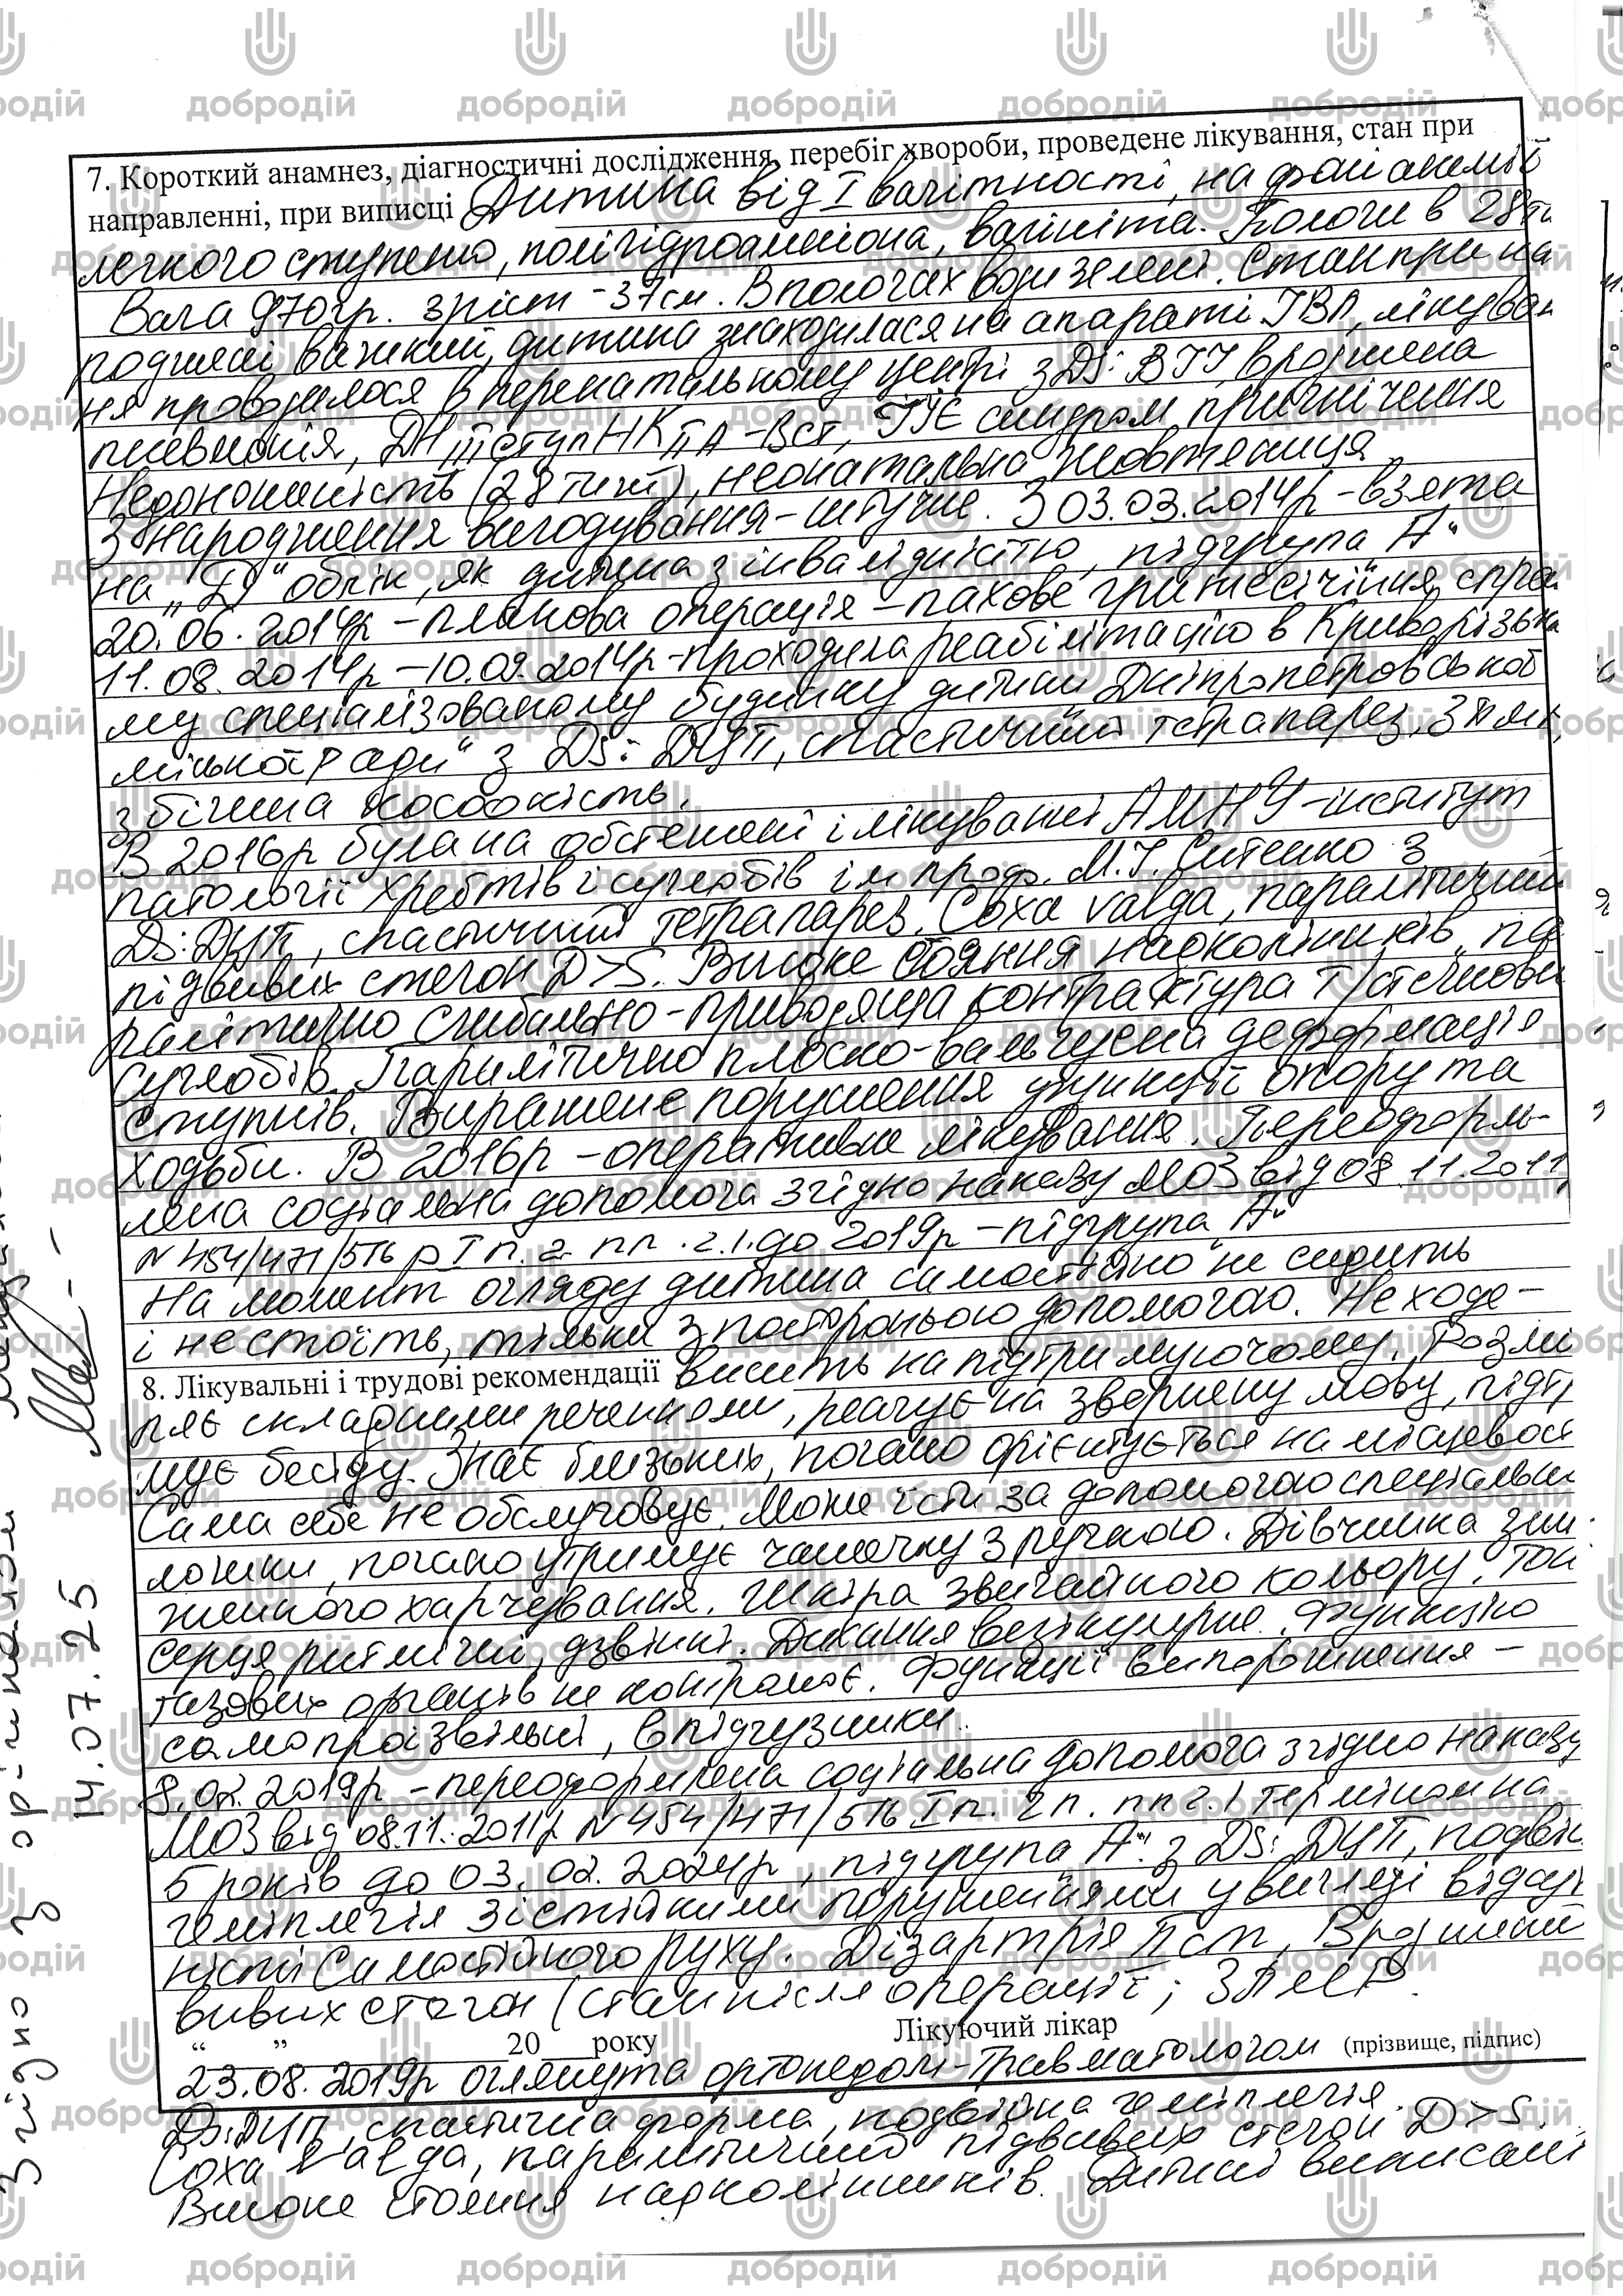 7. Короткий анамнез, діагностичні дослідження, перебіг хвороби, проведене лікування, стан при
направленні, при виписці Дитина від I вагітності, на фоні анемії
легкого ступеню, полігідроамніона, вагініта. Пологи в 28ти
Вага 970гр. зріст - 37см. В пологах води зелені. Стан при на
родженні важкий, дитина знаходилася на апараті ІВЛ, лікуван
ня проводилося в перенатальному центрі з DS: ВІІ, вроджена
пневмонія, ДН III ступ НК IIA - Вст, ГІЕ синдром пригнічення
Недоношеність (28 тиж), неонатальна жовтяниця
З народження вигодування - штучне. З 03.03.2014р - взята
на "Д" облік, як дитина з інвалідністю, підгрупа "А"
20.06.2014р - планова операція - пахове грижесічіння спра
11.08.2014р - 10.09.2014р - проходила реабілітацію в Криворізько
му спеціалізованому будинку дитини Дніпропетровської
міської ради" з DS: ДЦП, спастичний тетрапарез, ЗПМР,
збіжна косоокість.
В 2016р була на обстежені і лікуванні АМНУ - інститут
патології хребтів і суглобів ім проф. М.І. Ситенко з
DS: ДЦП, спастичний тетрапарез. Coxa valga, паралітичний
підвивих стегон D>S. Високе стояння надколінників, па
ралітично згибально-приводяща контрактура т/стегнови
суглобів. Паралітично плоско-вальгусна деформація
ступнів. Виражене порушення функції опору та
ходьби. В 2016р - оперативне лікування. Переоформ-
лена соціальна допомога згідно наказу МОЗ від 08.11.2011
N 454/471/516 р I п. 2 пп. 2.1. до 2019р - підгрупа "А"
На момент огляду дитина самостійно не сидить
і не стоїть, тільки з посторонньою допомогою. Не ходе -
8. Лікувальні і трудові рекомендації висить на підтримуючому. Розмі
ляє складними реченнями, реагує на звернену мову, підтр
мує бесіду. Знає близьких, погано орієнтується на місцевос
Сама себе не обслуговує. Може їсти за допомогою спеціальн
ложки, погано утримує чашечку з ручкою. Дівчинка зни
женного харчування. Шкіра звичайного кольору. Тон
серця ритмічні, дзвінкі. Дихання везікулярне. Функцію
тазових органів не контролює. Функції випорожнення -
самопроізвільні, в підгузники.
8.02.2019р - переоформлена соціальна допомога згідно наказу
МОЗ від 08.11.2011р N 454/471/516 I п. 2 п. пп 2.1 терміном на
5 років до 03.02.2024р, підгрупа "А" з DS: ДЦП, подвій
геміплегія зі стійкими порушеннями у вигляді відсут
ності самостійного руху. Дізартрія II ст, Вроджений
вивих стегон (стан після операції; ЗПМР.
" " 20 року Лікуючий лікар
(прізвище, підпис)
23.08.2019р оглянута ортопедом-травматологом
Ds: ДЦП, спастична форма, подвійна геміплегія.
Coxa valga, паралітичний підвивих стегон D>S.
Високе стояння надколінників. Дитині виписані
Згідно з оригіналом
14.07.25
добродій